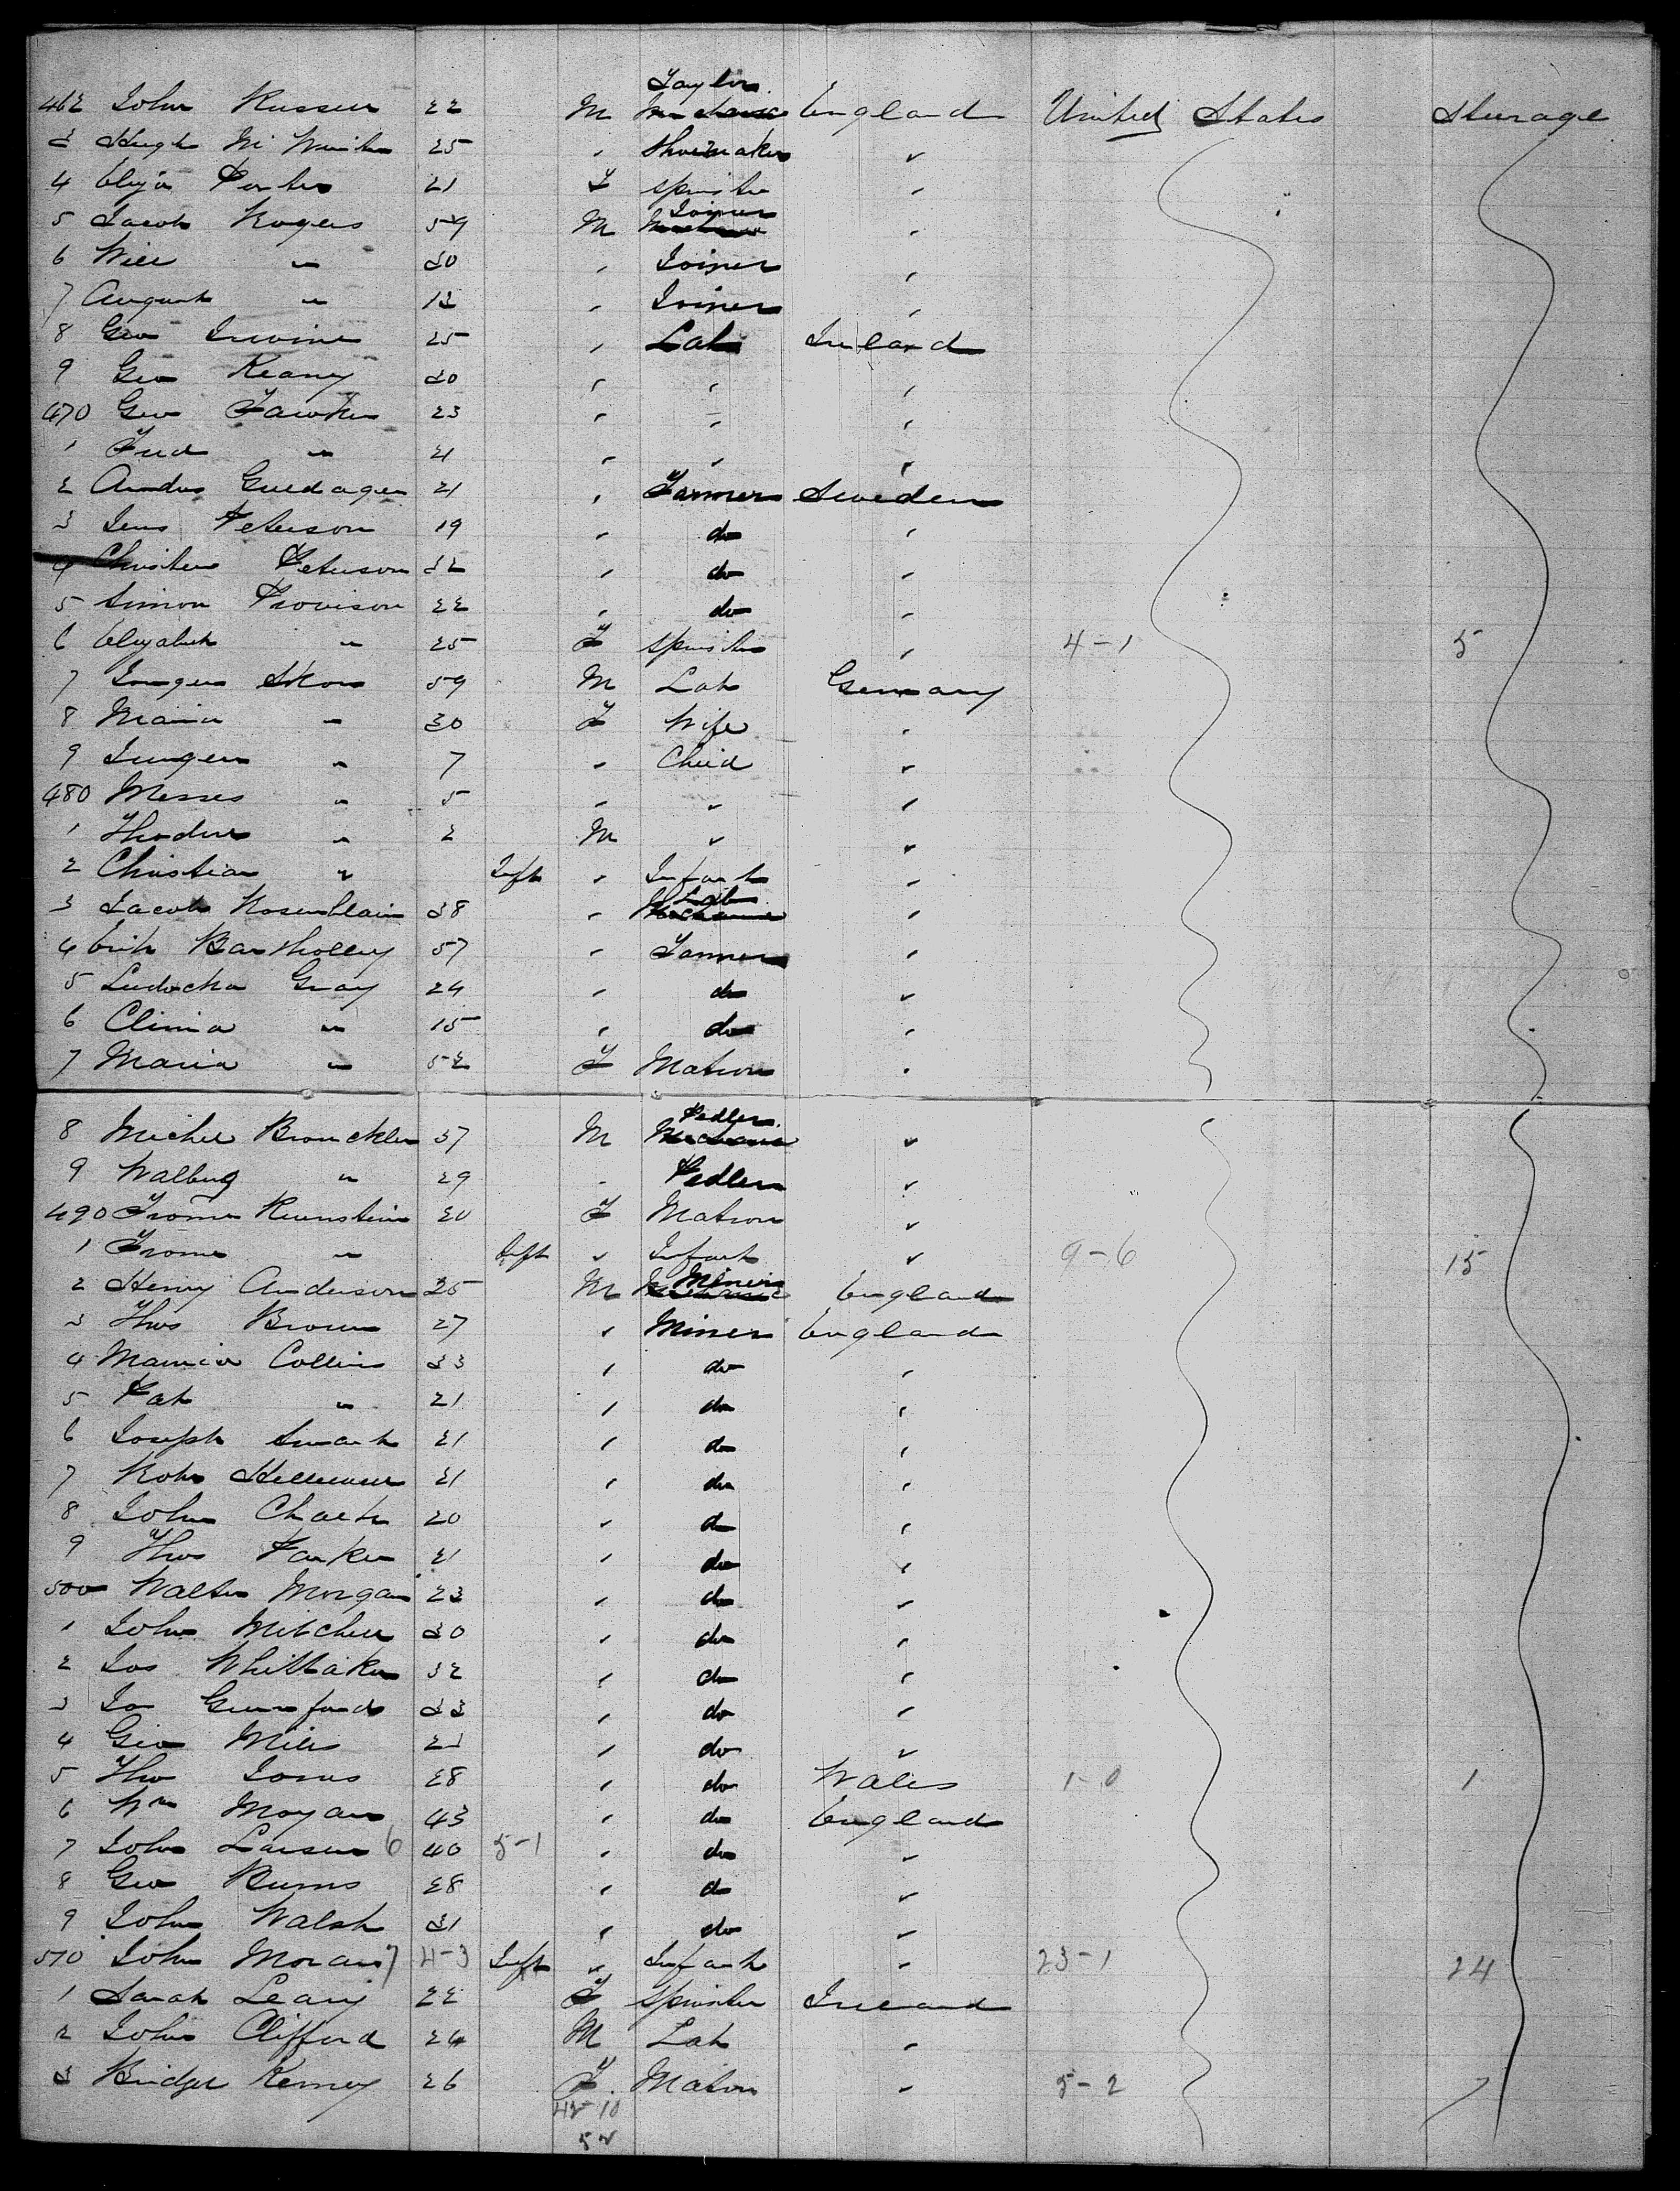 462 John Russell 22 M Taylor England United States Steerage
3 Hugh 25 " Shoemaker "
4 Eliza Porter 21 F Spinster "
5 Jacob Rogers 59 M Joiner "
6 Will " 30 " Joiner "
7 August " 13 " Joiner "
8 Geo Irvine 25 " Lab Ireland
9 Geo Keany 30 " " "
470 Geo Fawkes 23 " " "
1 Fred " 21 " " "
2 Andrs 21 " Farmer Sweden
3 Jens Peterson 19 " do "
4 Christen Peterson 32 " do "
5 Simon Provison 22 " do "
6 Elizabeth " 25 F Spinster " 4-1 5
7 59 M Lab Germany
8 Maria " 30 F Wife "
9 " 7 " Child "
480 " 5 " " "
1 Theodure " 2 M " "
2 Christian " Inft " Infant "
3 Jacob Rosenblain 38 " Lab "
4 Erik Bartholley 57 " Farmer "
5 Gray 24 " do "
6 " 15 " do "
7 Maria " 52 F Matron "
8 Michel Brouckler 37 M Pedler "
9 Walbug " 29 " Pedler "
490 Frome 20 F Matron "
1 Frome " Inft " Infant " 9-6 15
2 Henry Anderson 25 M Miner England
3 Thos Brown 27 " Miner England
4 Collins 33 " do "
5 Pat " 21 " do "
6 Joseph Smart 21 " do "
7 Robt 21 " do "
8 John 20 " do "
9 Thos Parker 21 " do "
500 Walter Morgan 23 " do "
1 John Mitchell 30 " do "
2 Jos Whittaker 32 " do "
3 33 " do "
4 Geo Mills 21 " do "
5 Tho Jones 28 " do Wales 1-0 1
6 Wm 43 " do England
7 John Larsen 6 40 5-1 " do "
8 Geo Burns 28 " do "
9 John Walsh 31 " do "
510 John Moran 7 4-3 Inft " Infant " 23-1 24
1 Sarah Leary 22 F Spinster Ireland
2 John Clifford 24 M Lab "
3 Bridget Kenney 26 F Matron " 5-2 7
42-10
52